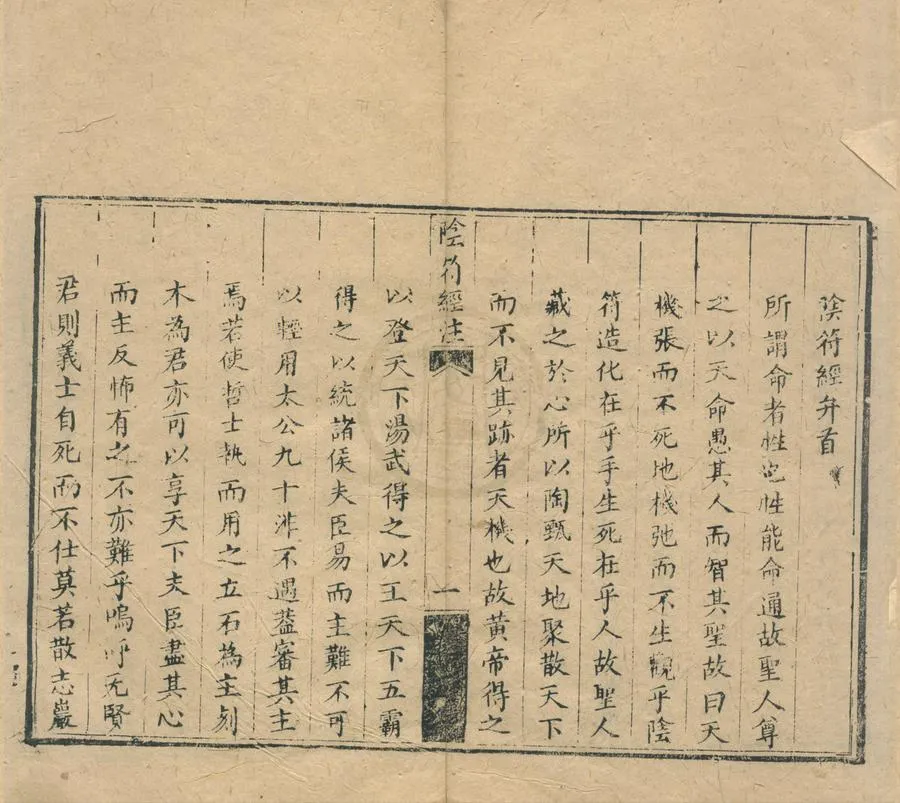 陰符經弁首
所謂命者性也性能命通故聖人尊
之以天命愚其人而智其聖故曰天
機張而不死地機弛而不生觀乎陰
符造化在乎手生死在乎人故聖人
藏之於心所以陶甄天地聚散天下
而不見其跡者天機也故黄帝得之
陰符經注
一
以登天下湯武得之以王天下五霸
得之以統諸侯夫臣易而主難不可
以輕用太公九十非不遇葢審其主
焉若使哲士執而用之立石為主刻
木為君亦可以享天下夫臣盡其心
而主反怖有之不亦難乎嗚呼无賢
君則義士自死而不仕莫若散志巖